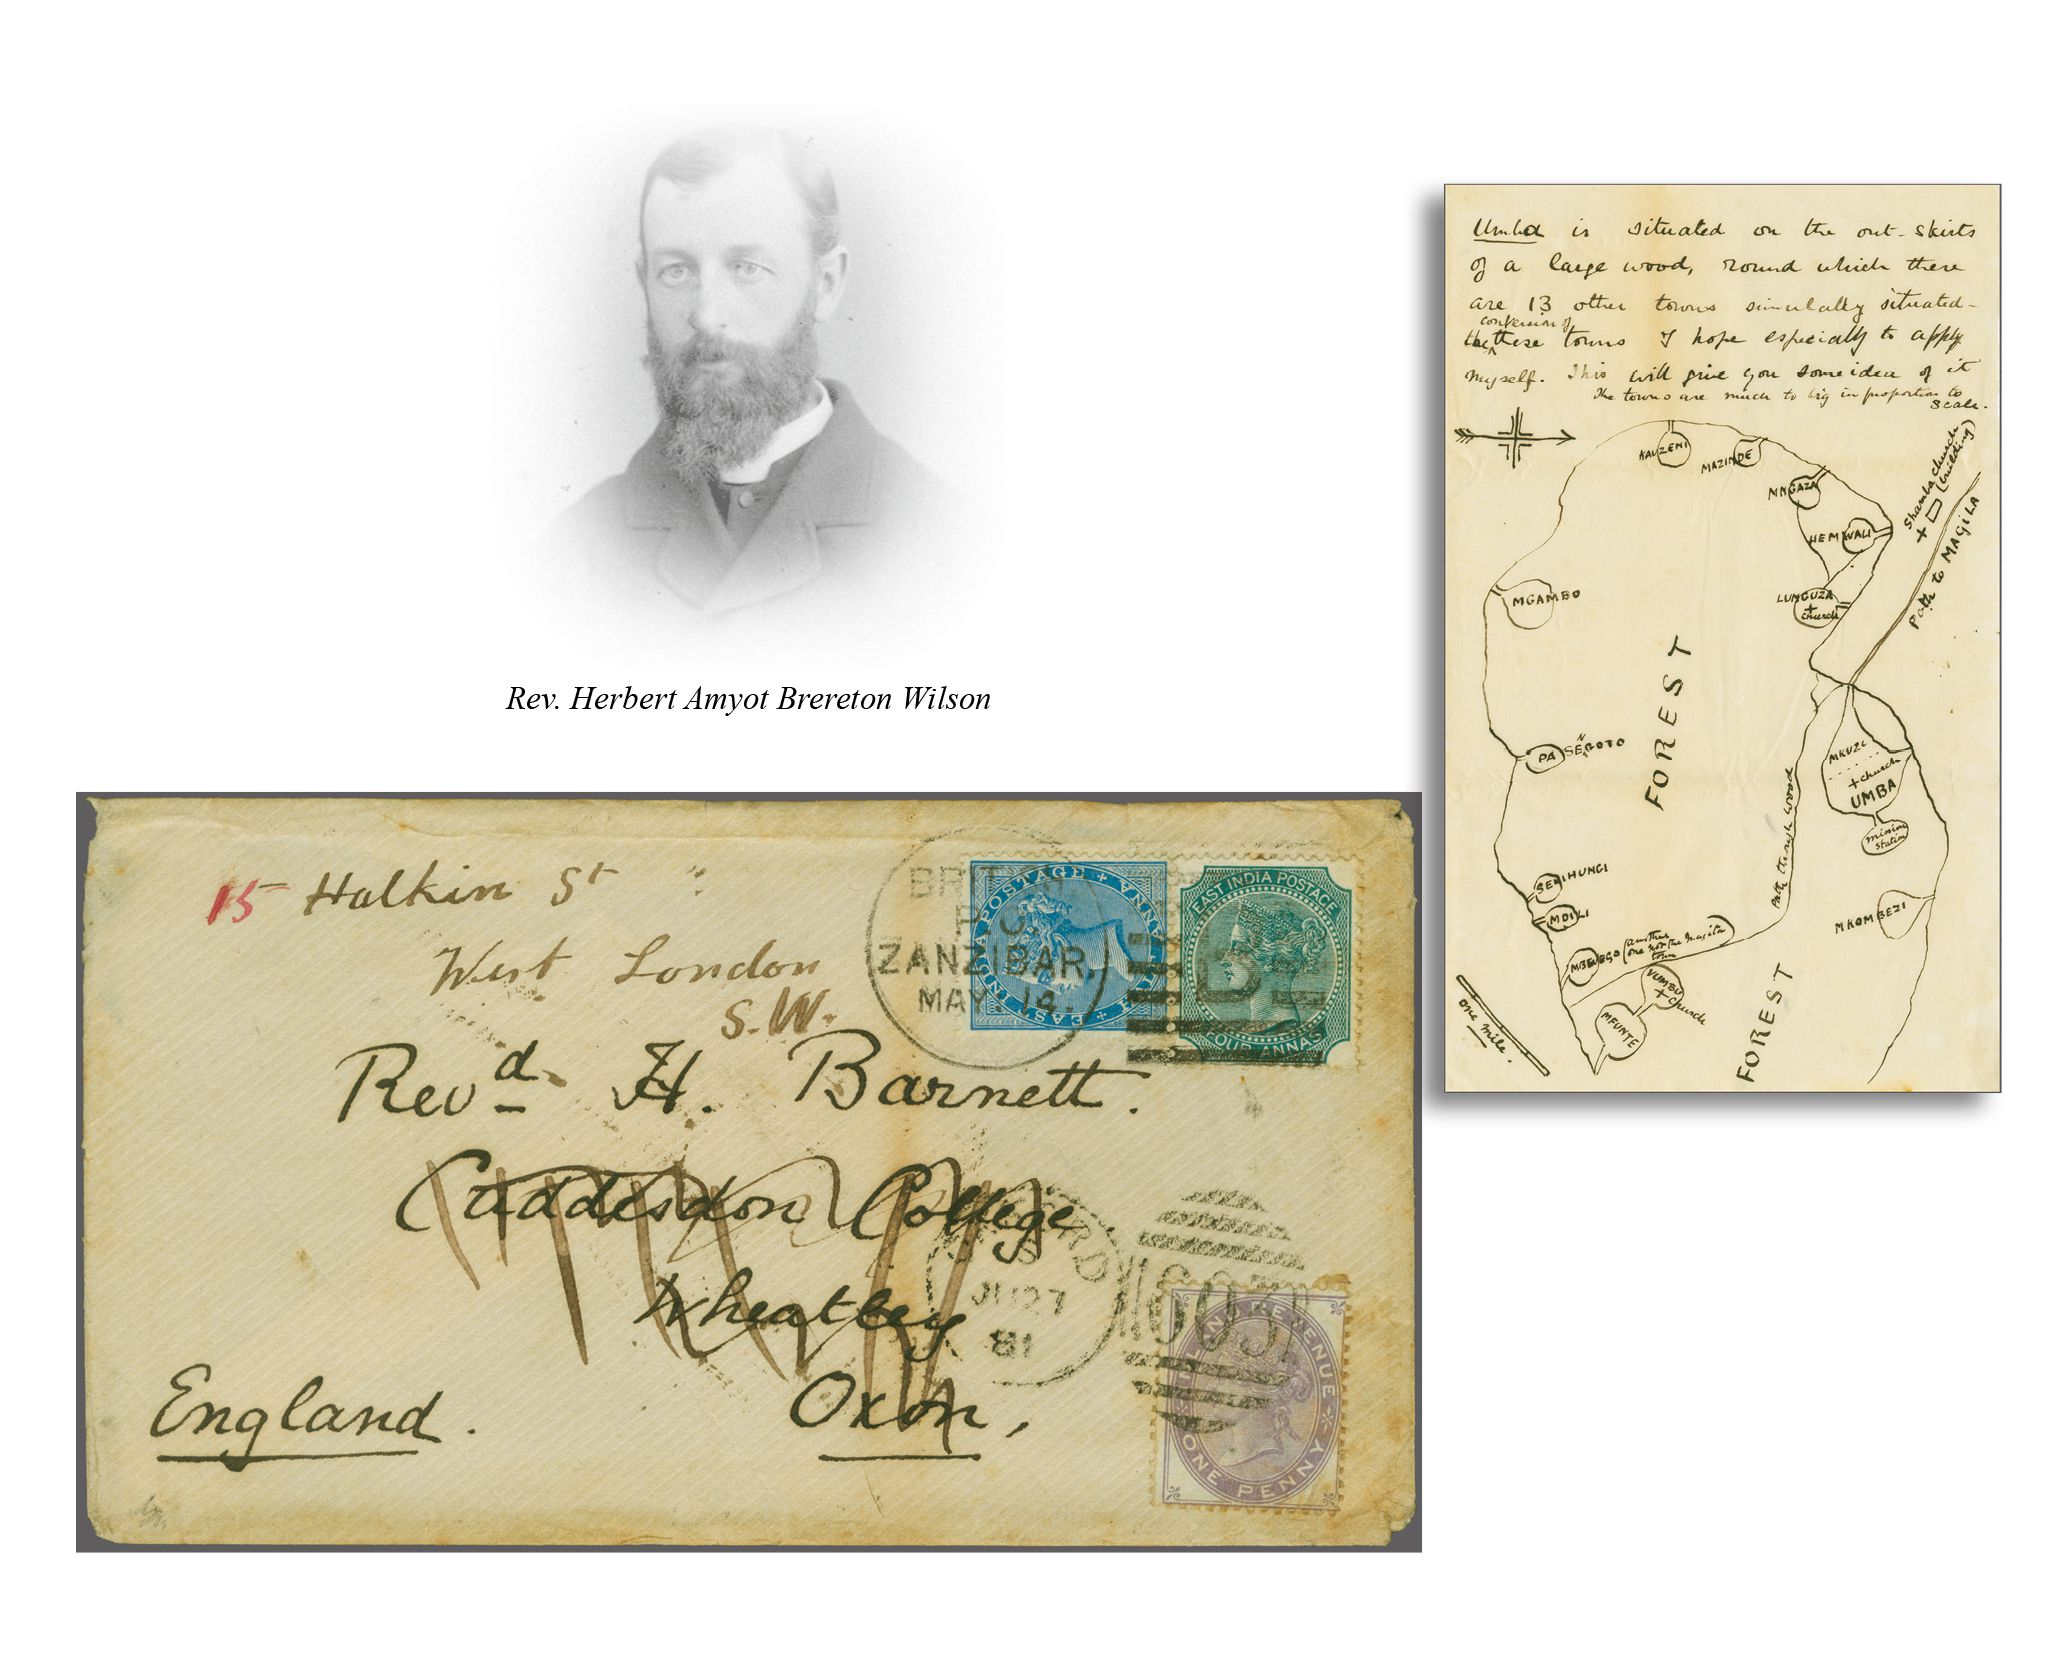 Rev. Herbert Amyot Brereton Wilson
Umba is situated on the out-skirts
of a large wood, round which there
are 13 other towns similarly situated-
conversion of
the these towns I hope especially to apply
myself. This will give you some idea of it
The towns are much to big in proportion to
scale.
KAUZENI
MAZINDE
MNGAZA
HEMWALI
Shamba church
(building)
Path to MAGILA
LUNGUZA
church
MGAMBO
FOREST
PA SEGOTO
N
MKUZI
church
UMBA
mission
station
Path through wood
SEKIHUNGI
MDILI
MBEUEGO (another
one not the Magila
town)
MKOMBEZI
VUMBU
church
MFUNTE
one mile.
FOREST
15 Halkin St
West London
S.W.
Revd H. Barnett.
Cuddesdon College
Wheatley
Oxon,
England.
BRITISH
P.O.
ZANZIBAR.
MAY. 14.
EAST INDIA POSTAGE
HALF ANNA
EAST INDIA POSTAGE
FOUR ANNAS
B
OXFORD
JU 27
81
603
POSTAGE AND INLAND REVENUE
ONE PENNY